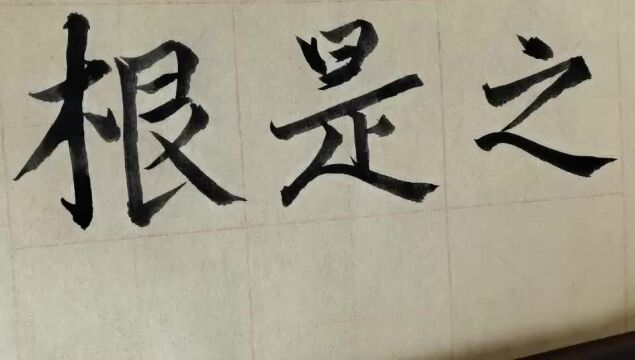 根是之